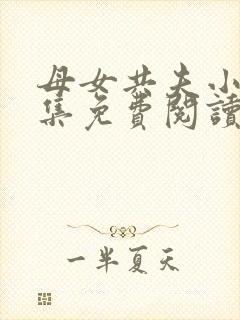 母女共夫小
集免费阅读
一半夏天